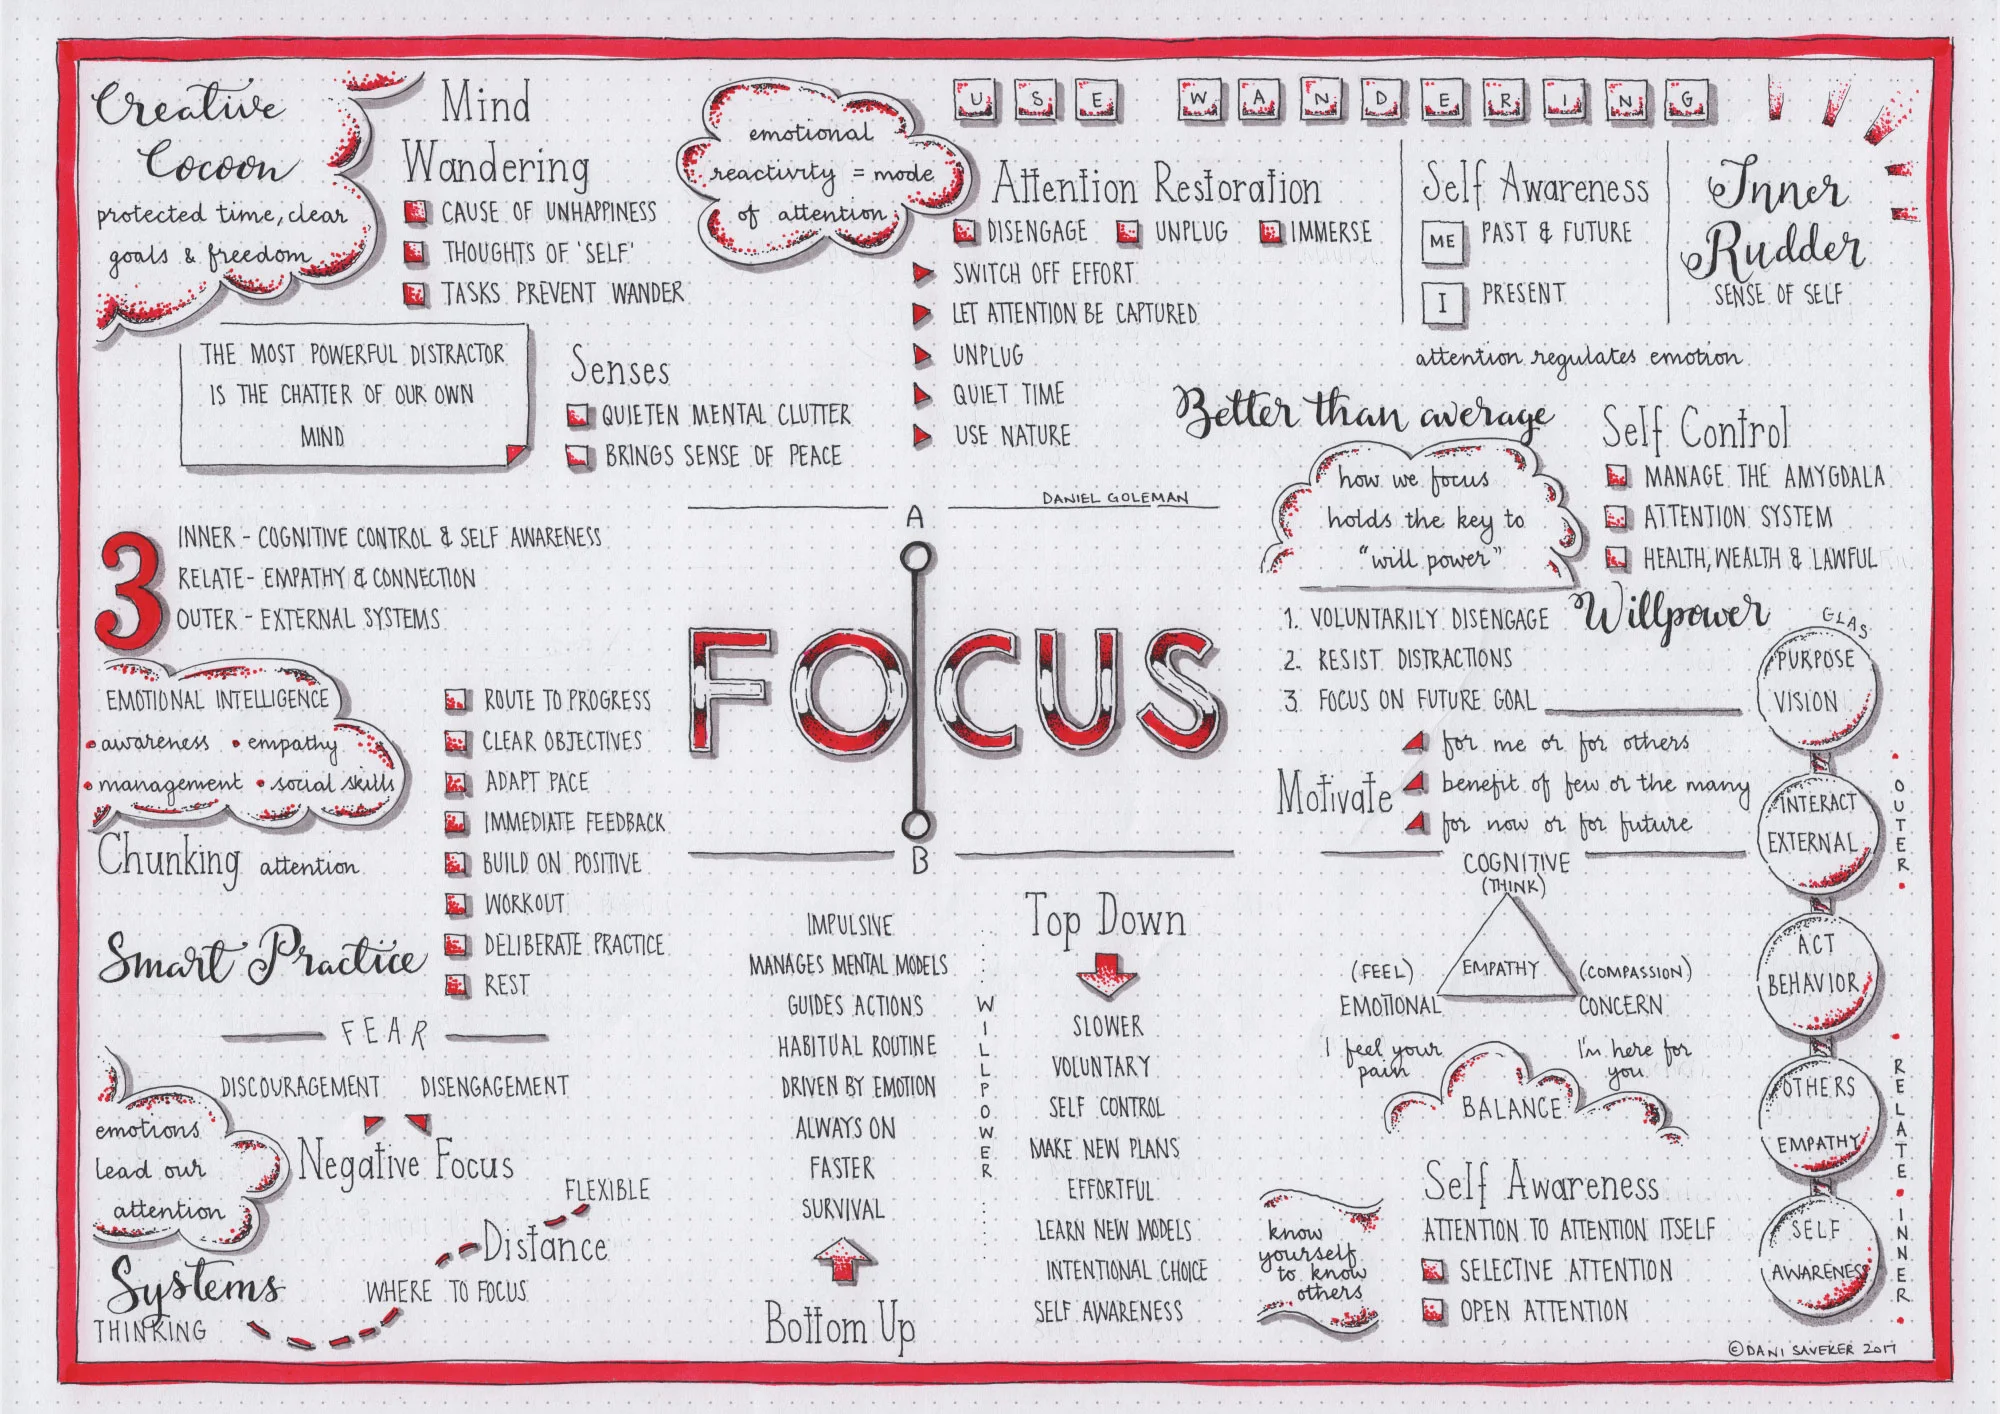 Creative
Cocoon
protected time, clear
goals & freedom
Mind
Wandering
CAUSE OF UNHAPPINESS
THOUGHTS OF 'SELF'
TASKS PREVENT WANDER
emotional
reactivity = mode
of attention
USE WANDERING
Attention Restoration
DISENGAGE UNPLUG IMMERSE
SWITCH OFF EFFORT
LET ATTENTION BE CAPTURED
UNPLUG
QUIET TIME
USE NATURE
Self Awareness
ME PAST & FUTURE
I PRESENT
Inner
Rudder
SENSE OF SELF
attention regulates emotion
THE MOST POWERFUL DISTRACTOR
IS THE CHATTER OF OUR OWN
MIND
Senses
QUIETEN MENTAL CLUTTER
BRINGS SENSE OF PEACE
Better than average
how we focus
holds the key to
"will power"
Self Control
MANAGE THE AMYGDALA
ATTENTION SYSTEM
HEALTH, WEALTH & LAWFUL
3
INNER - COGNITIVE CONTROL & SELF AWARENESS
RELATE - EMPATHY & CONNECTION
OUTER - EXTERNAL SYSTEMS
DANIEL GOLEMAN
A
FOCUS
B
Willpower
1. VOLUNTARILY DISENGAGE
2. RESIST DISTRACTIONS
3. FOCUS ON FUTURE GOAL
Motivate
for me or for others
benefit of few or the many
for now or for future
EMOTIONAL INTELLIGENCE
• awareness • empathy
• management • social skills
Chunking attention
Smart Practice
ROUTE TO PROGRESS
CLEAR OBJECTIVES
ADAPT PACE
IMMEDIATE FEEDBACK
BUILD ON POSITIVE
WORKOUT
DELIBERATE PRACTICE
REST
FEAR
DISCOURAGEMENT DISENGAGEMENT
Negative Focus
emotions
lead our
attention
Systems
THINKING
WHERE TO FOCUS
Distance
FLEXIBLE
IMPULSIVE
MANAGES MENTAL MODELS
GUIDES ACTIONS
HABITUAL ROUTINE
DRIVEN BY EMOTION
ALWAYS ON
FASTER
SURVIVAL
Bottom Up
WILLPOWER
Top Down
SLOWER
VOLUNTARY
SELF CONTROL
MAKE NEW PLANS
EFFORTFUL
LEARN NEW MODELS
INTENTIONAL CHOICE
SELF AWARENESS
COGNITIVE
(THINK)
EMPATHY
(FEEL)
EMOTIONAL
(COMPASSION)
CONCERN
I feel your
pain
I'm here for
you
BALANCE
know
yourself
to know
others
Self Awareness
ATTENTION TO ATTENTION ITSELF
SELECTIVE ATTENTION
OPEN ATTENTION
GLAS
PURPOSE
VISION
INTERACT
EXTERNAL
ACT
BEHAVIOR
OTHERS
EMPATHY
SELF
AWARENESS
• OUTER •
• RELATE • INNER •
©DANI SAVEKER 2017